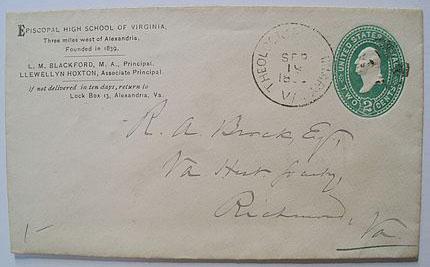 EPISCOPAL HIGH SCHOOL OF VIRGINIA,
Three miles west of Alexandria.
Founded in 1839.
L. M. BLACKFORD, M. A., Principal.
LLEWELLYN HOXTON, Associate Principal.
If not delivered in ten days, return to
Lock Box 13, Alexandria, Va.
SEP
19
VA
UNITED STATES
TWO 2 CENTS
R. A. Brock, Esq,
Va Hist Socty,
Richmond,
Va.